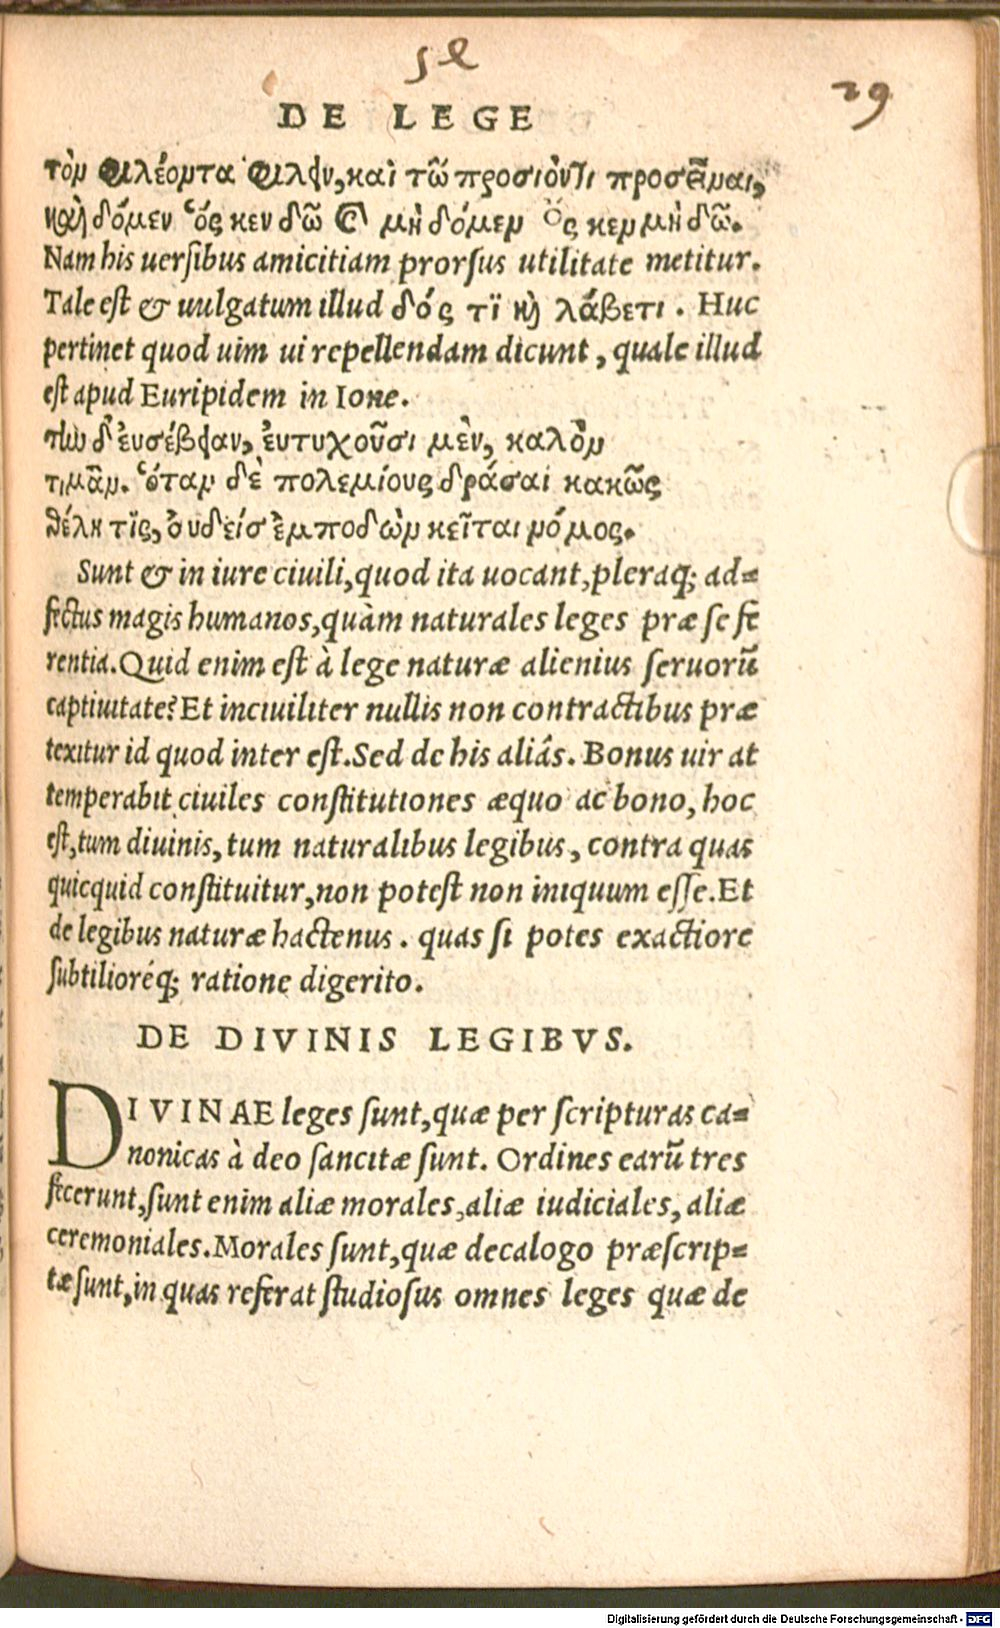 29
DE LEGE
τὸν φιλέοντα φιλεῖν, καὶ τῷ προσιόντι προσεῖναι,
καὶ δόμεν ὅς κεν δῷ καὶ μὴ δόμεν ὅς κεν μὴ δῷ.
Nam his uersibus amicitiam prorsus utilitate metitur.
Tale est & uulgatum illud δός τϊ καὶ λάβετι. Huc
pertinet quod uim ui repellendam dicunt, quale illud
est apud Euripidem in Ione.
τὴν δ' ἐυσέβειαν, ἐυτυχοῦσι μὲν, καλὸν
τιμᾶν. ὅταν δὲ πολεμίους δράσαι κακῶς
θέλη τϊς, ὀυδείς ἐμποδὼν κεῖται νόμος.
Sunt & in iure ciuili, quod ita uocant, pleraq; ad=
fectus magis humanos, quàm naturales leges præ se fe
rentia. Quid enim est à lege naturæ alienius seruorũ
captiuitate? Et inciuiliter nullis non contractibus præ
texitur id quod inter est. Sed de his aliâs. Bonus uir at
temperabit ciuiles constitutiones æquo ac bono, hoc
est, tum diuinis, tum naturalibus legibus, contra quas
quicquid constituitur, non potest non iniquum esse. Et
de legibus naturæ hactenus. quas si potes exactiore
subtilioréq; ratione digerito.
DE DIVINIS LEGIBVS.
DIVINAE leges sunt, quæ per scripturas ca=
nonicas à deo sancitæ sunt. Ordines earũ tres
fecerunt, sunt enim aliæ morales, aliæ iudiciales, aliæ
ceremoniales. Morales sunt, quæ decalogo præscrip=
tæ sunt, in quas referat studiosus omnes leges quæ de
Digitalisierung gefördert durch die Deutsche Forschungsgemeinschaft - DFG